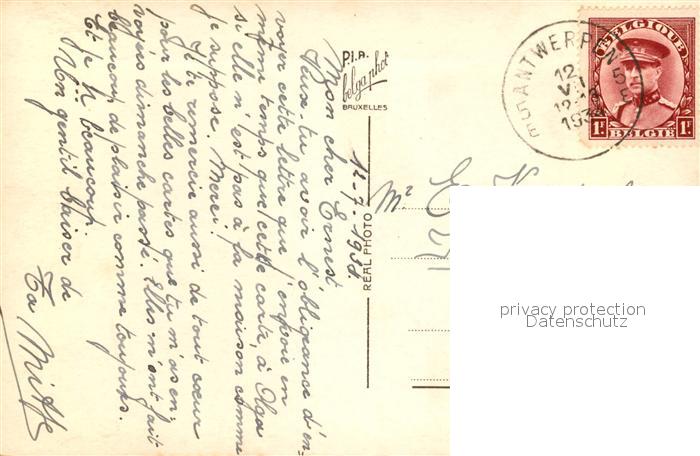 12-7-1938.
Mon cher Ernest
Veux-tu avoir l'obligeance d'en-
voyer cette lettre que j'envoie en
même temps que cette carte, à Olga
si elle n'est pas à la maison comme
je suppose. Merci.
Je te remercie aussi de tout cœur
pour les belles cartes que tu m'as en-
voyées dimanche passé. Elles m'ont fait
beaucoup de plaisir comme toujours.
Et je ti beaucoup
Un gentil baiser de
Ta
P.I.A.
belgaphot
BRUXELLES
REAL PHOTO
Mr
ANTWERPEN 5
12
VII
193
E
BELGIQUE
1F
BELGIË
1F
privacy protection
Datenschutz